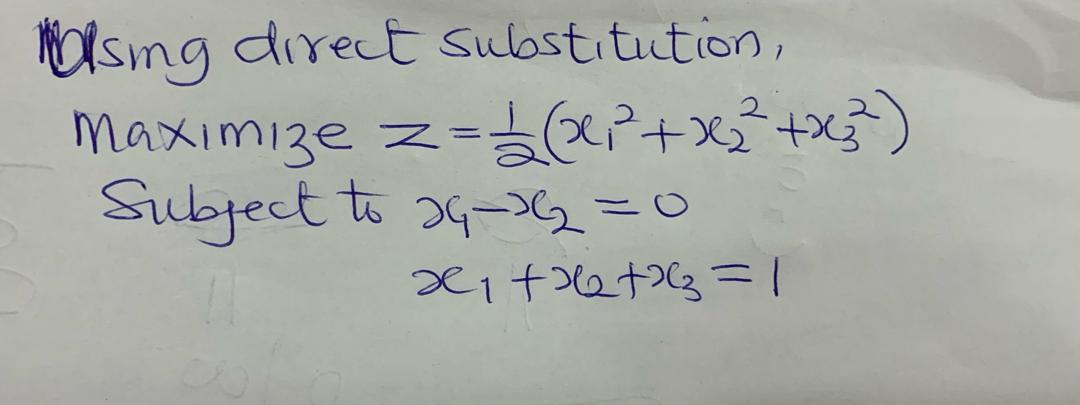 Using direct substitution,
Maximize Z = 1/2 (x₁² + x₂² + x₃²)
Subject to x₁ - x₂ = 0
x₁ + x₂ + x₃ = 1